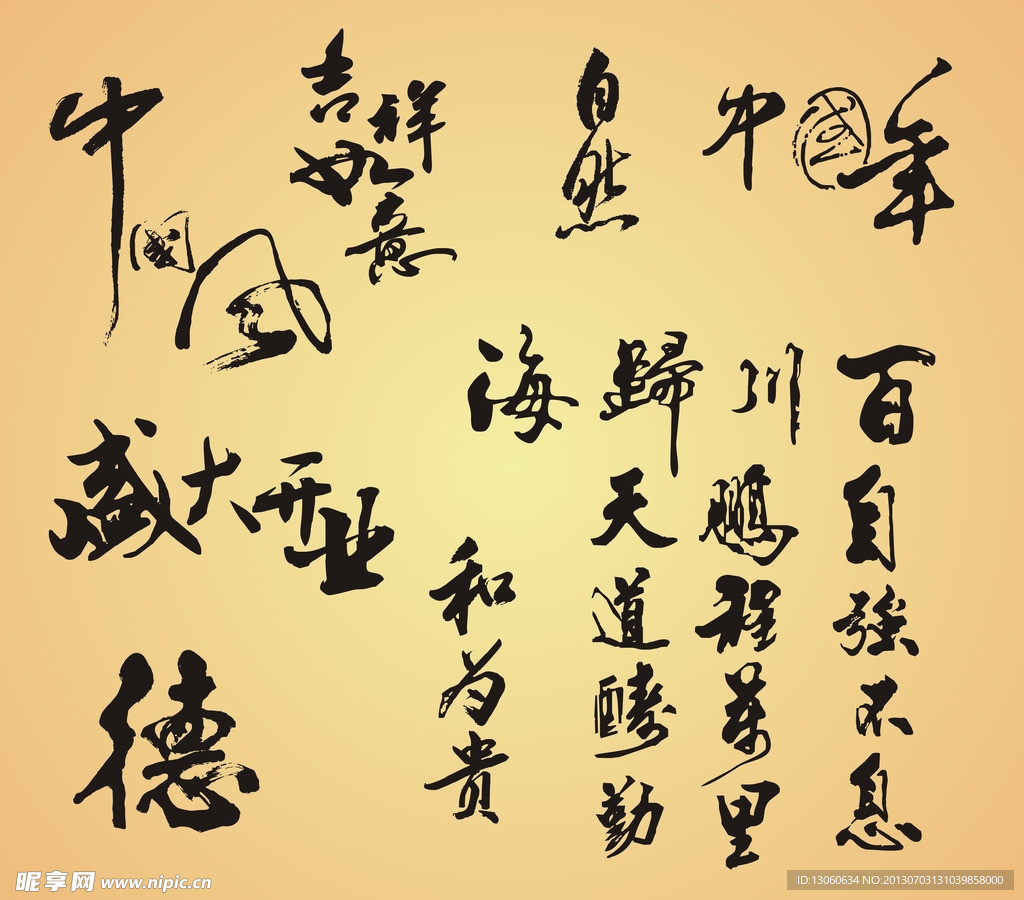 中國风
吉祥如意
自然
中國年
百川歸海
盛大开业
德
和为贵
天道醻勤
鵬程萬里
自強不息
昵享网 www.nipic.cn
ID:13060634 NO:20130703131039858000